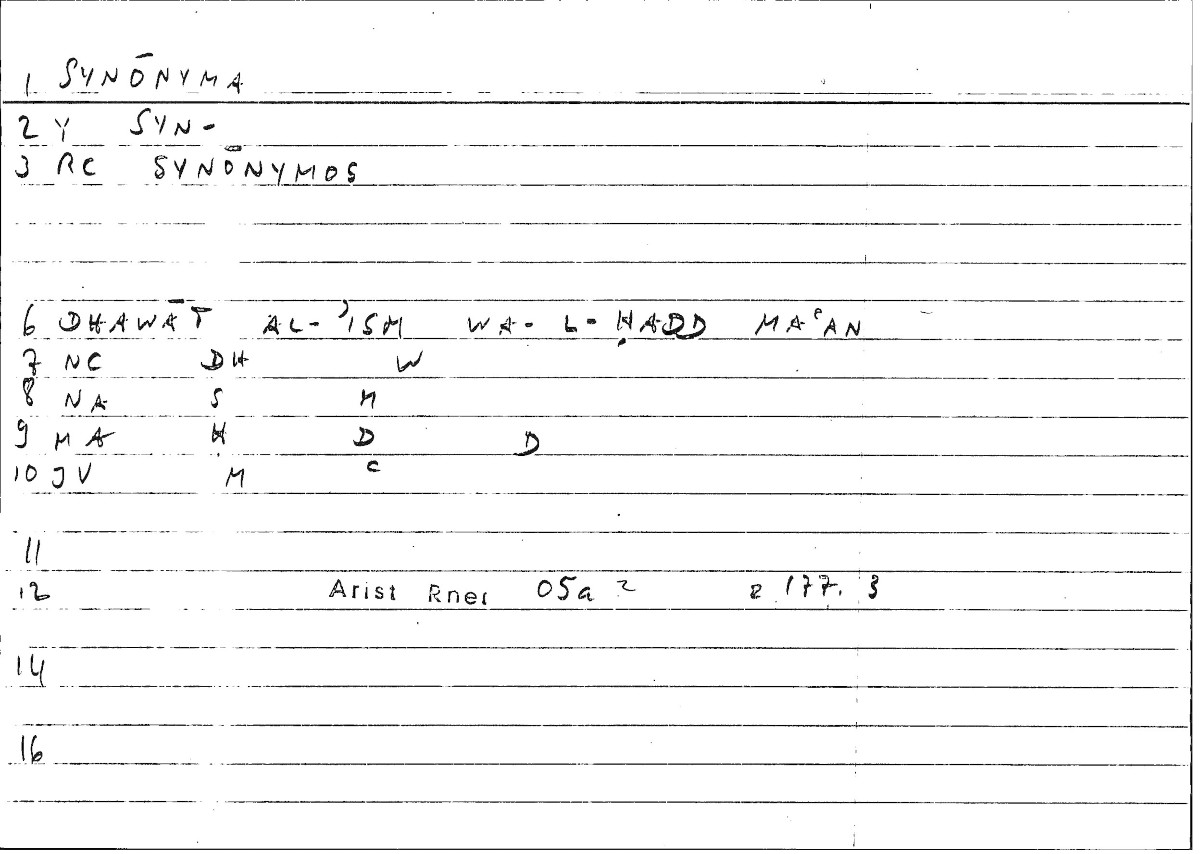 1 SYNŌNYMA
2 Y SYN-
3 RC SYNŌNYMOS
6 DHAWĀT AL-ʾISM WA-L-ḤADD MAʿAN
7 NC DH W
8 NA S M
9 MA Ḥ D D
10 JV M ʿ
11
12 Arist Rhet 05a 2 177. 3
14
16